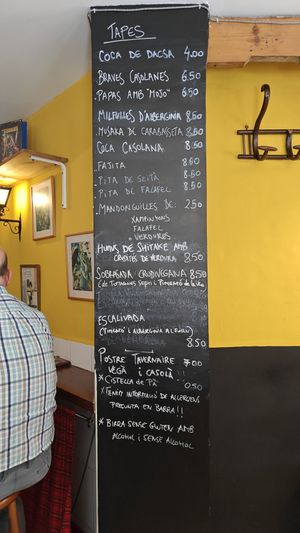 TAPES
COCA DE DACSA 4.00
BRAVES CASOLANES 6.50
PAPAS AMB "MOJO" 6.50
MILFULLES D'ALBERGINIA 8.50
MUSAKA DE CARABASSETA 8.50
COCA CASOLANA 8.50
FAJITA 8.50
PITA DE SEITÀ 8.50
PITA DE FALAFEL 8.50
MANDONGUILLES DE: 2.50
XAMPINYONS
FALAFEL
VERDURES
HUMUS DE SHITAKE AMB
CRUDITÉS DE VERDURA 8.50
SOBRASADA CRUDIVEGANA 8.50
ESCALIVADA
8.50
POSTRE TAVERNAIRE 7.00
VEGÀ I CASOLÀ!!
* CISTELLA DE PÀ 0.50
* TENIM INFORMACIÓ DE AL·LERGENS
PREGUNTA EN BARRA!!
* BIRRA SENSE GLUTEN AMB
ALCOHOL I SENSE ALCOHOL